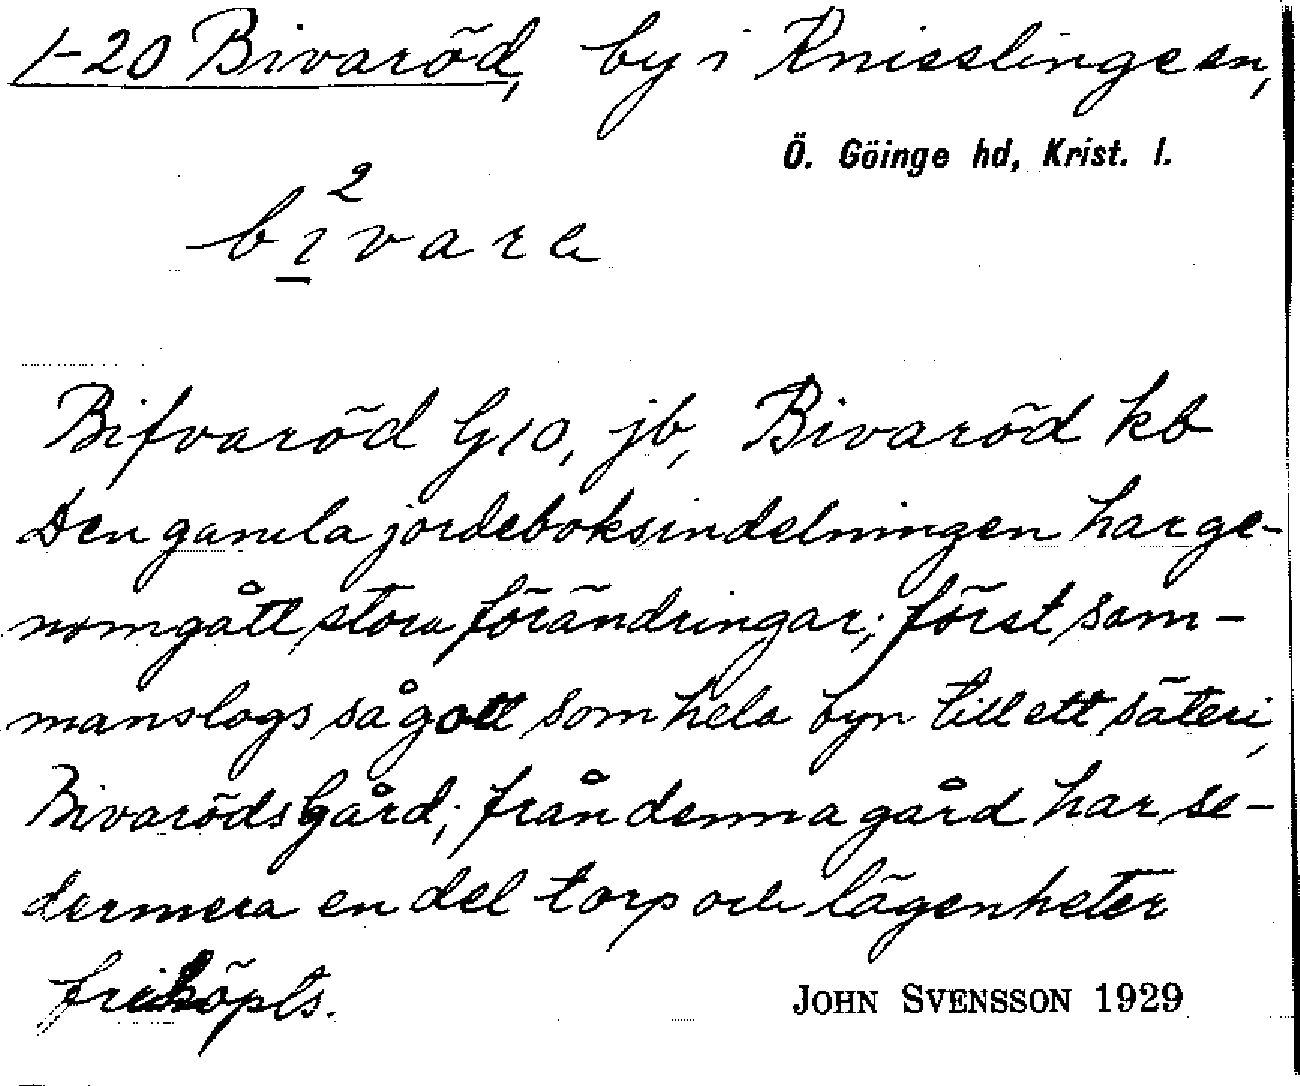 1-20 Bivaröd, by i Knisslinge sn,
Ö. Göinge hd, Krist. l.
2
bivara
Bifvaröd G10, jb, Bivaröd kb
Den gamla jordeboksindelningen har ge-
nomgått stora förändringar; först sam-
manslogs så gott som hela byn till ett säteri,
Bivaröds Gård; från denna gård har se-
dermera en del torp och lägenheter
friköpts.
JOHN SVENSSON 1929